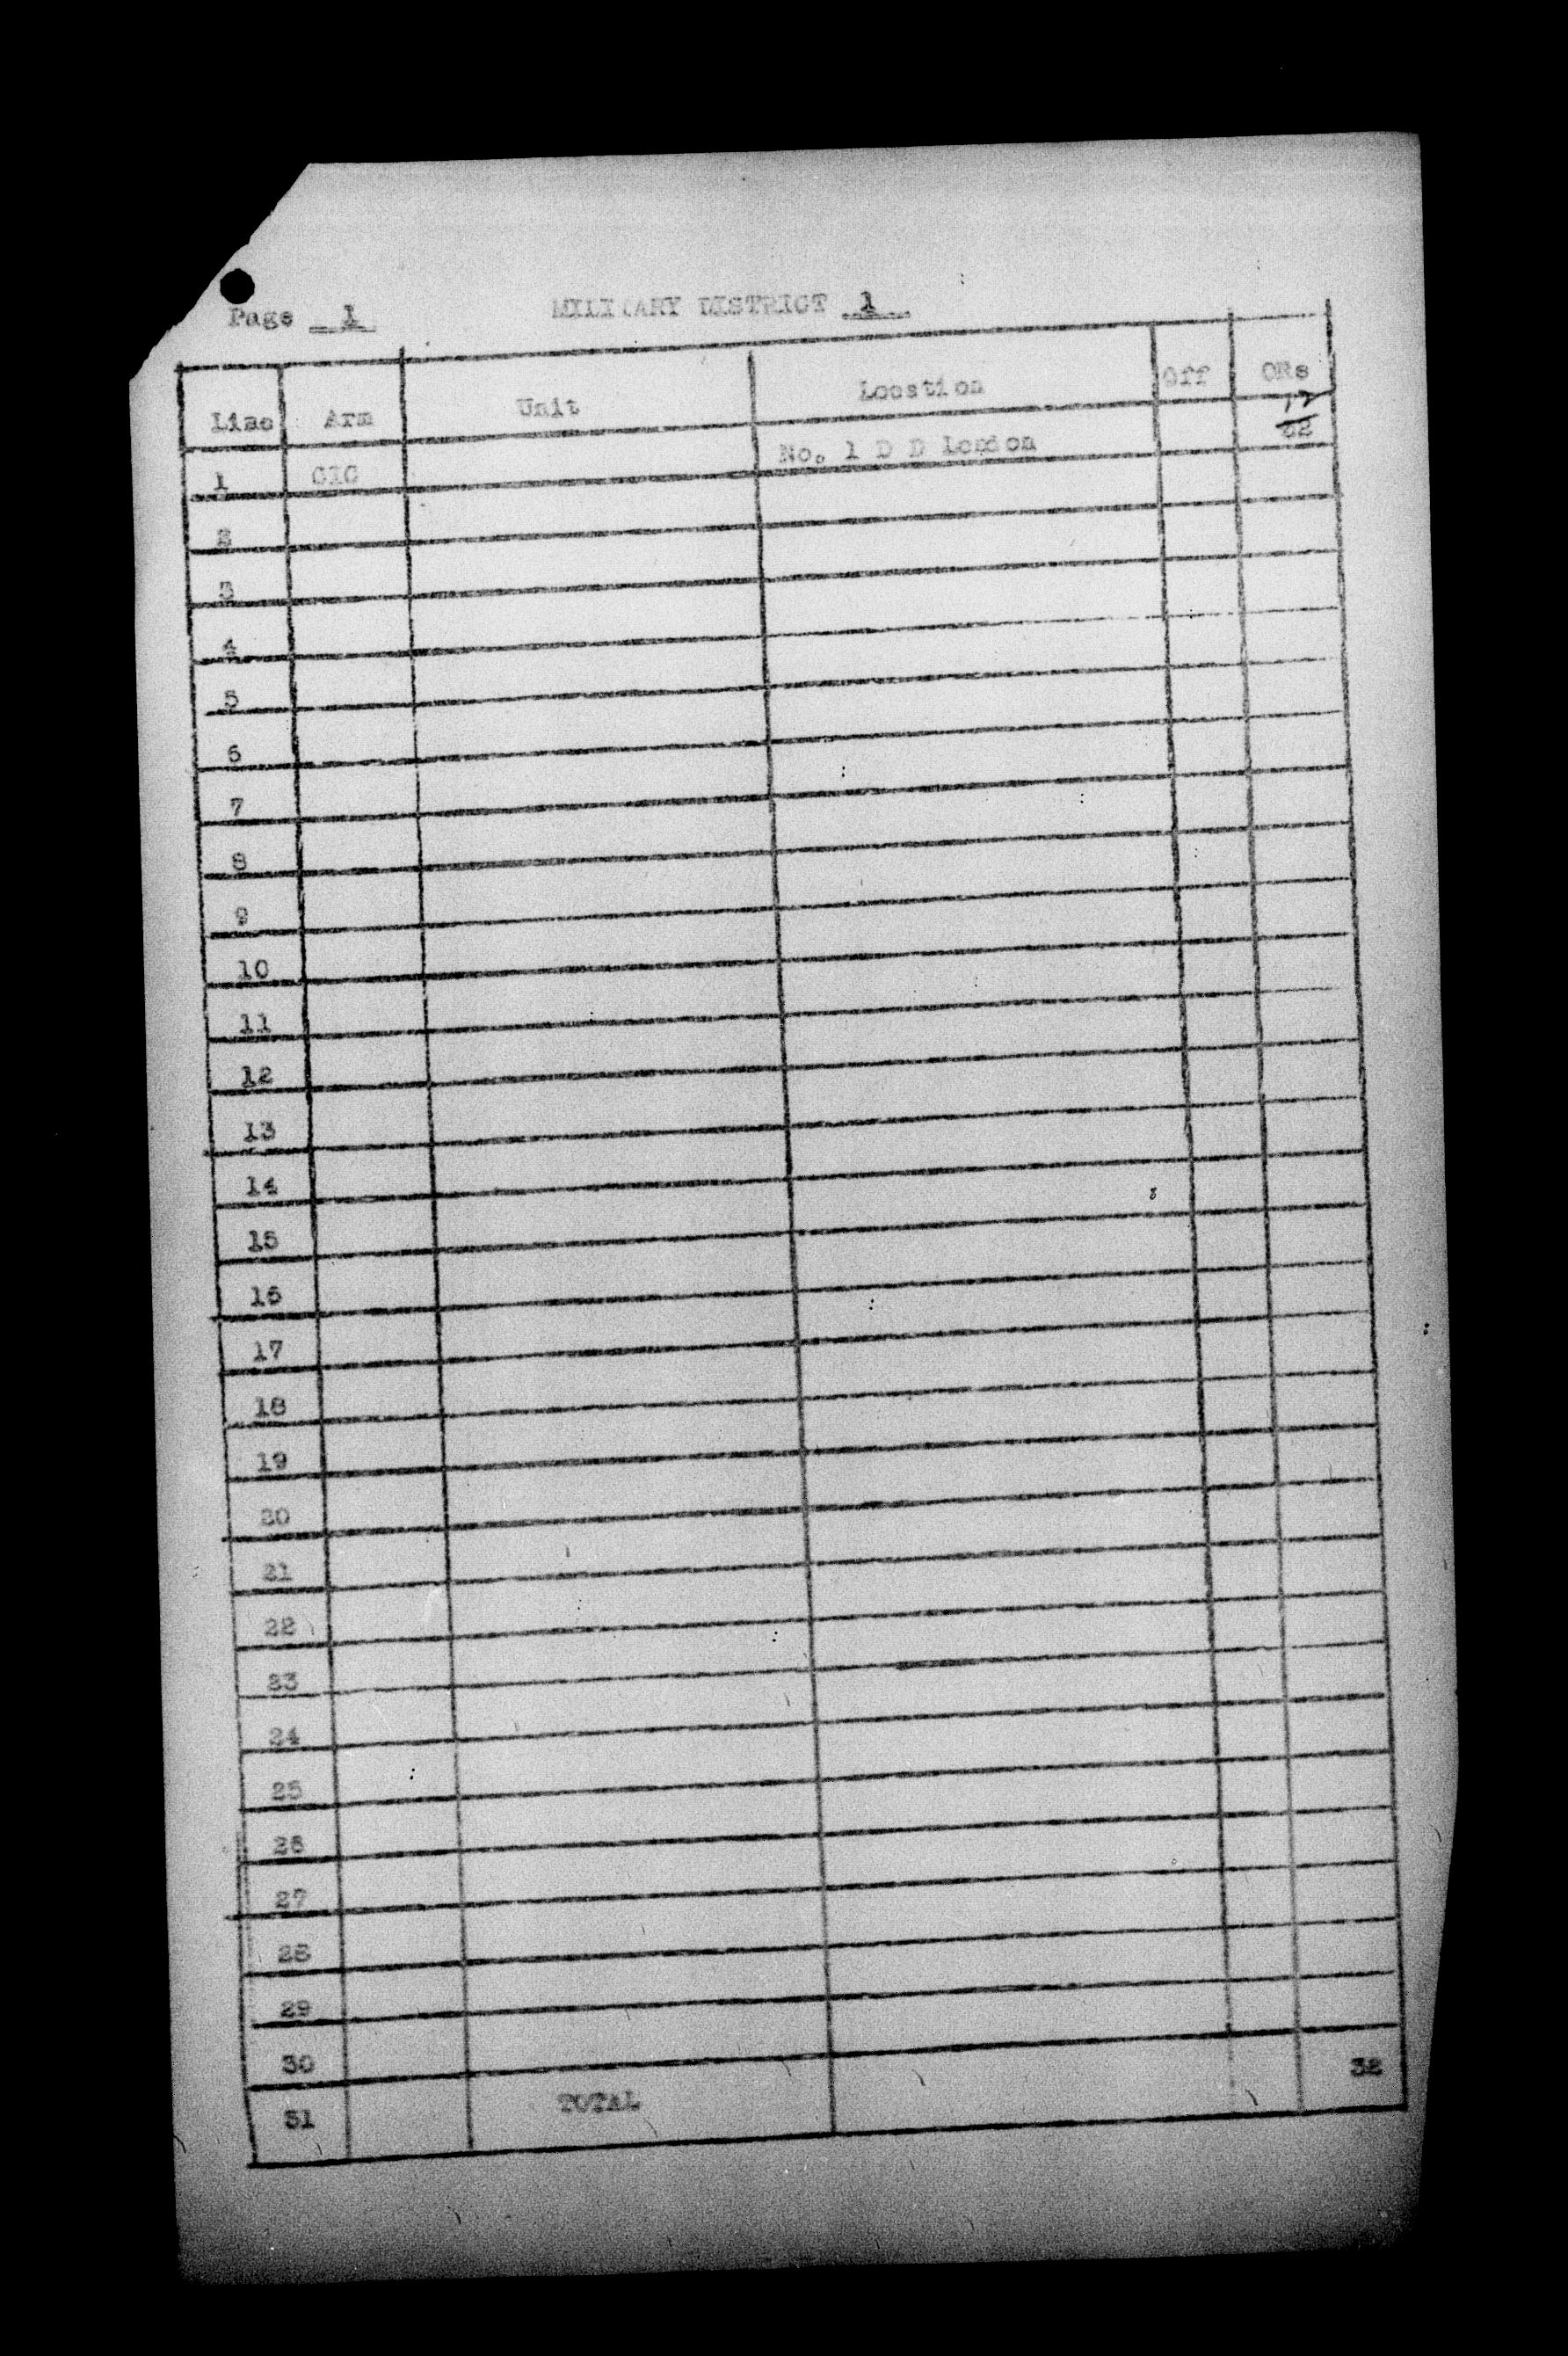 Page 1 MILITARY DISTRICT 1
Line Arm Unit Location Off ORs
12
1 CIC No. 1 D D London 32
2
3
4
5
6
7
8
9
10
11
12
13
14
15
16
17
18
19
20
21
22
23
24
25
26
27
28
29
30
31 TOTAL 32